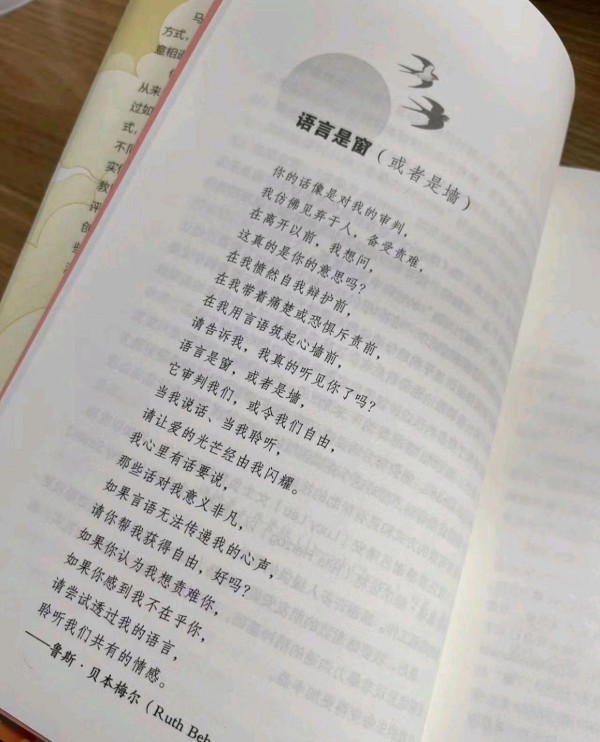 语言是窗（或者是墙）
你的话像是对我的审判，
我仿佛见弃于人，备受责难，
在离开以前，我想问，
这真的是你的意思吗？
在我愤然自我辩护前，
在我带着痛楚或恐惧斥责前，
在我用言语筑起心墙前，
请告诉我，我真的听见你了吗？
语言是窗，或者是墙，
它审判我们，或令我们自由，
当我说话、当我聆听，
请让爱的光芒经由我闪耀。
我心里有话要说，
那些话对我意义非凡，
如果言语无法传递我的心声，
请你帮我获得自由，好吗？
如果你认为我想责难你，
如果你感到我不在乎你，
请尝试透过我的语言，
聆听我们共有的情感。
——鲁斯·贝本梅尔（Ruth Beb
马
方式，
意相
从来
过如
式，
不同
实
教
评
创
些